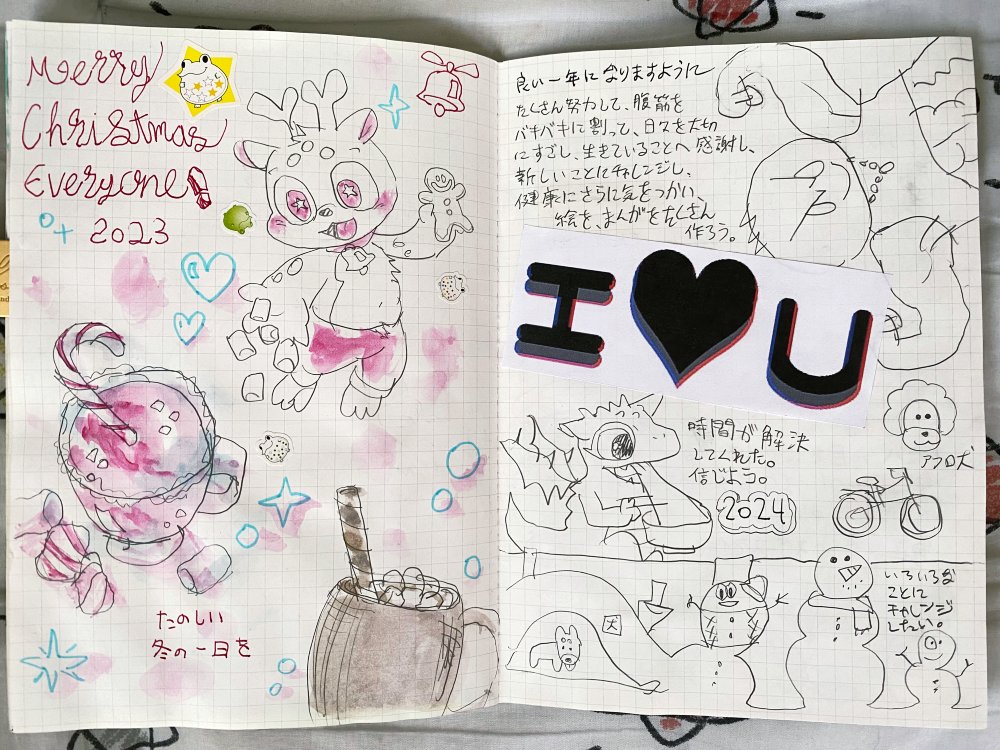 Merry
Christmas
Everyone
2023
たのしい
冬の一日を
良い一年になりますように
たくさん努力して、腹筋を
バキバキに割って、日々を大切
にすごし、生きていることへ感謝し、
新しいことにチャレンジし、
健康にさらに気をつかい、
絵を、まんがをたくさん
作ろう。
I ♥ U
時間が解決
してくれた。
信じよう。
2024
アフロ犬
いろいろな
ことに
チャレンジ
したい。